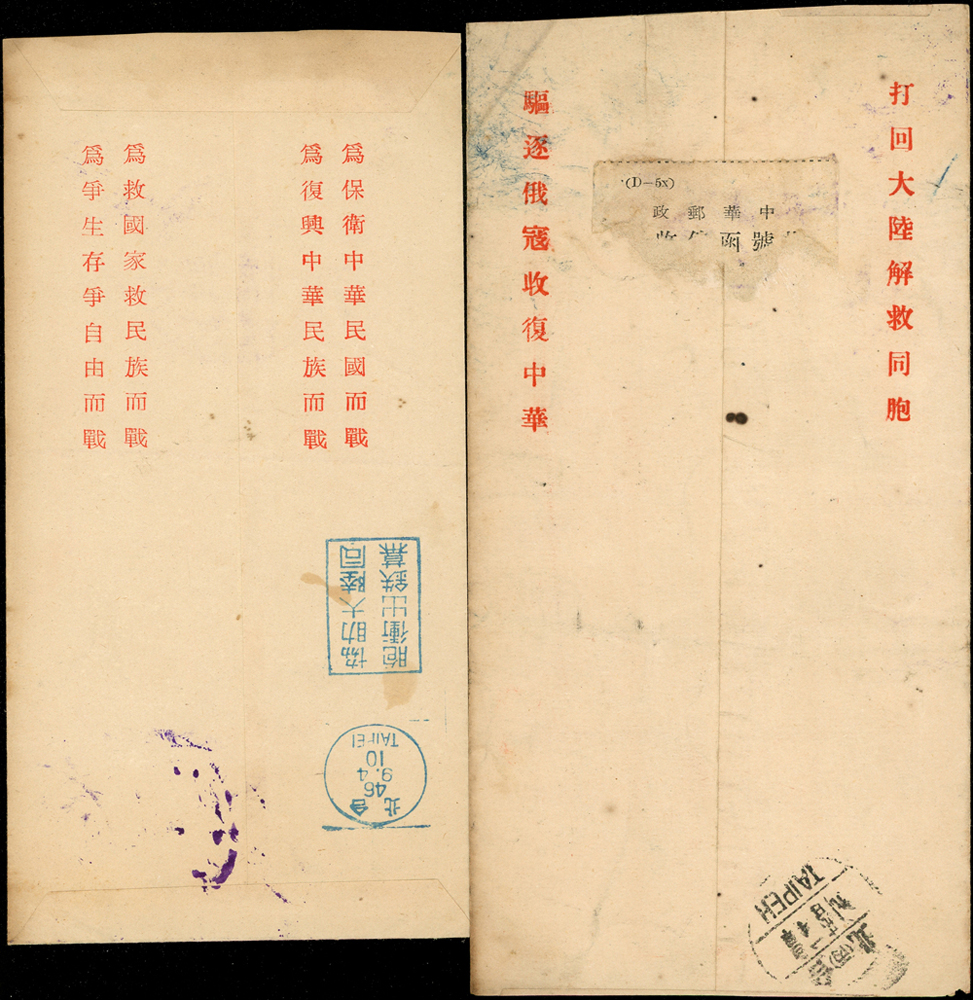 爲保衛中華民國而戰
爲復興中華民族而戰
爲救國家救民族而戰
爲爭生存爭自由而戰
協助大陸同
胞衝出鉄幕
台北
46
9.4
10
TAIPEI
打回大陸解救同胞
(D—5x)
中華郵政
號函
驅逐俄寇收復中華
北(丙)
TAIPEH